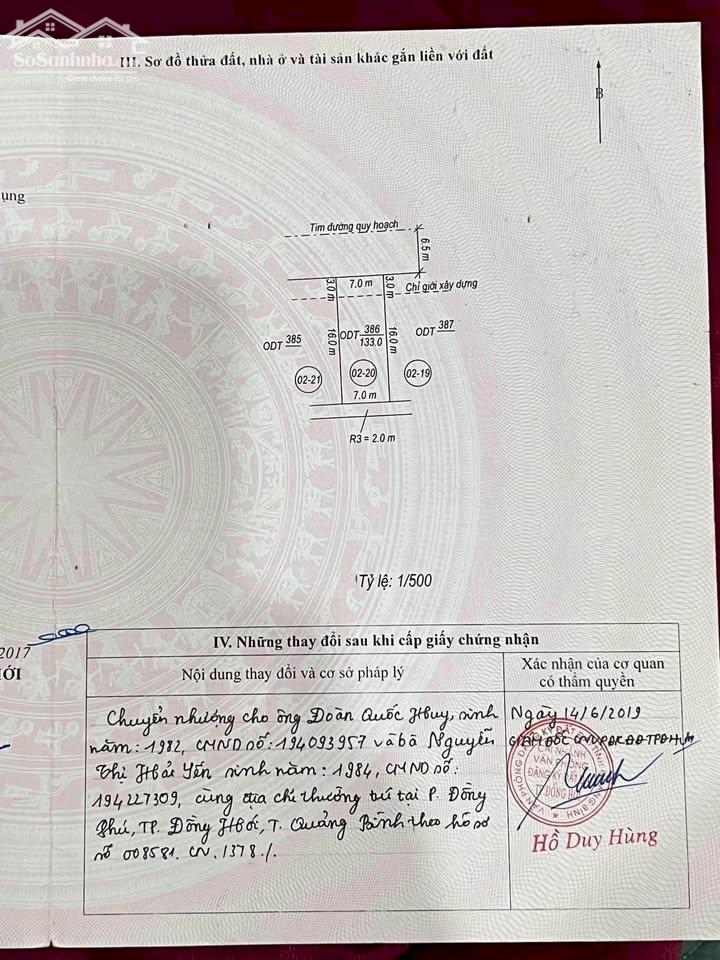 SoSanhnha.com
III. Sơ đồ thửa đất, nhà ở và tài sản khác gắn liền với đất
B
ụng
Tim đường quy hoạch
6.5 m
3.0 m
7.0 m
3.0 m
Chỉ giới xây dựng
ODT 385
16.0 m
ODT 386
133.0
16.0 m
ODT 387
02-21
02-20
02-19
7.0 m
R3 = 2.0 m
Tỷ lệ: 1/500
2017
ỚI
IV. Những thay đổi sau khi cấp giấy chứng nhận
Nội dung thay đổi và cơ sở pháp lý
Xác nhận của cơ quan
có thẩm quyền
Chuyển nhượng cho ông Đoàn Quốc Huy, sinh
năm: 1982, CMND số: 194093957 và bà Nguyễn
Thị Hải Yến sinh năm: 1984, CMND số:
194227309, cùng địa chỉ thường trú tại P. Đồng
Phú, TP. Đồng Hới, T. Quảng Bình theo hồ sơ
số 008581.CN.1378./.
Ngày 14/6/2019
GIÁM ĐỐC CNVPĐKĐĐ TP ĐH
CHI NHÁNH
Hồ Duy Hùng